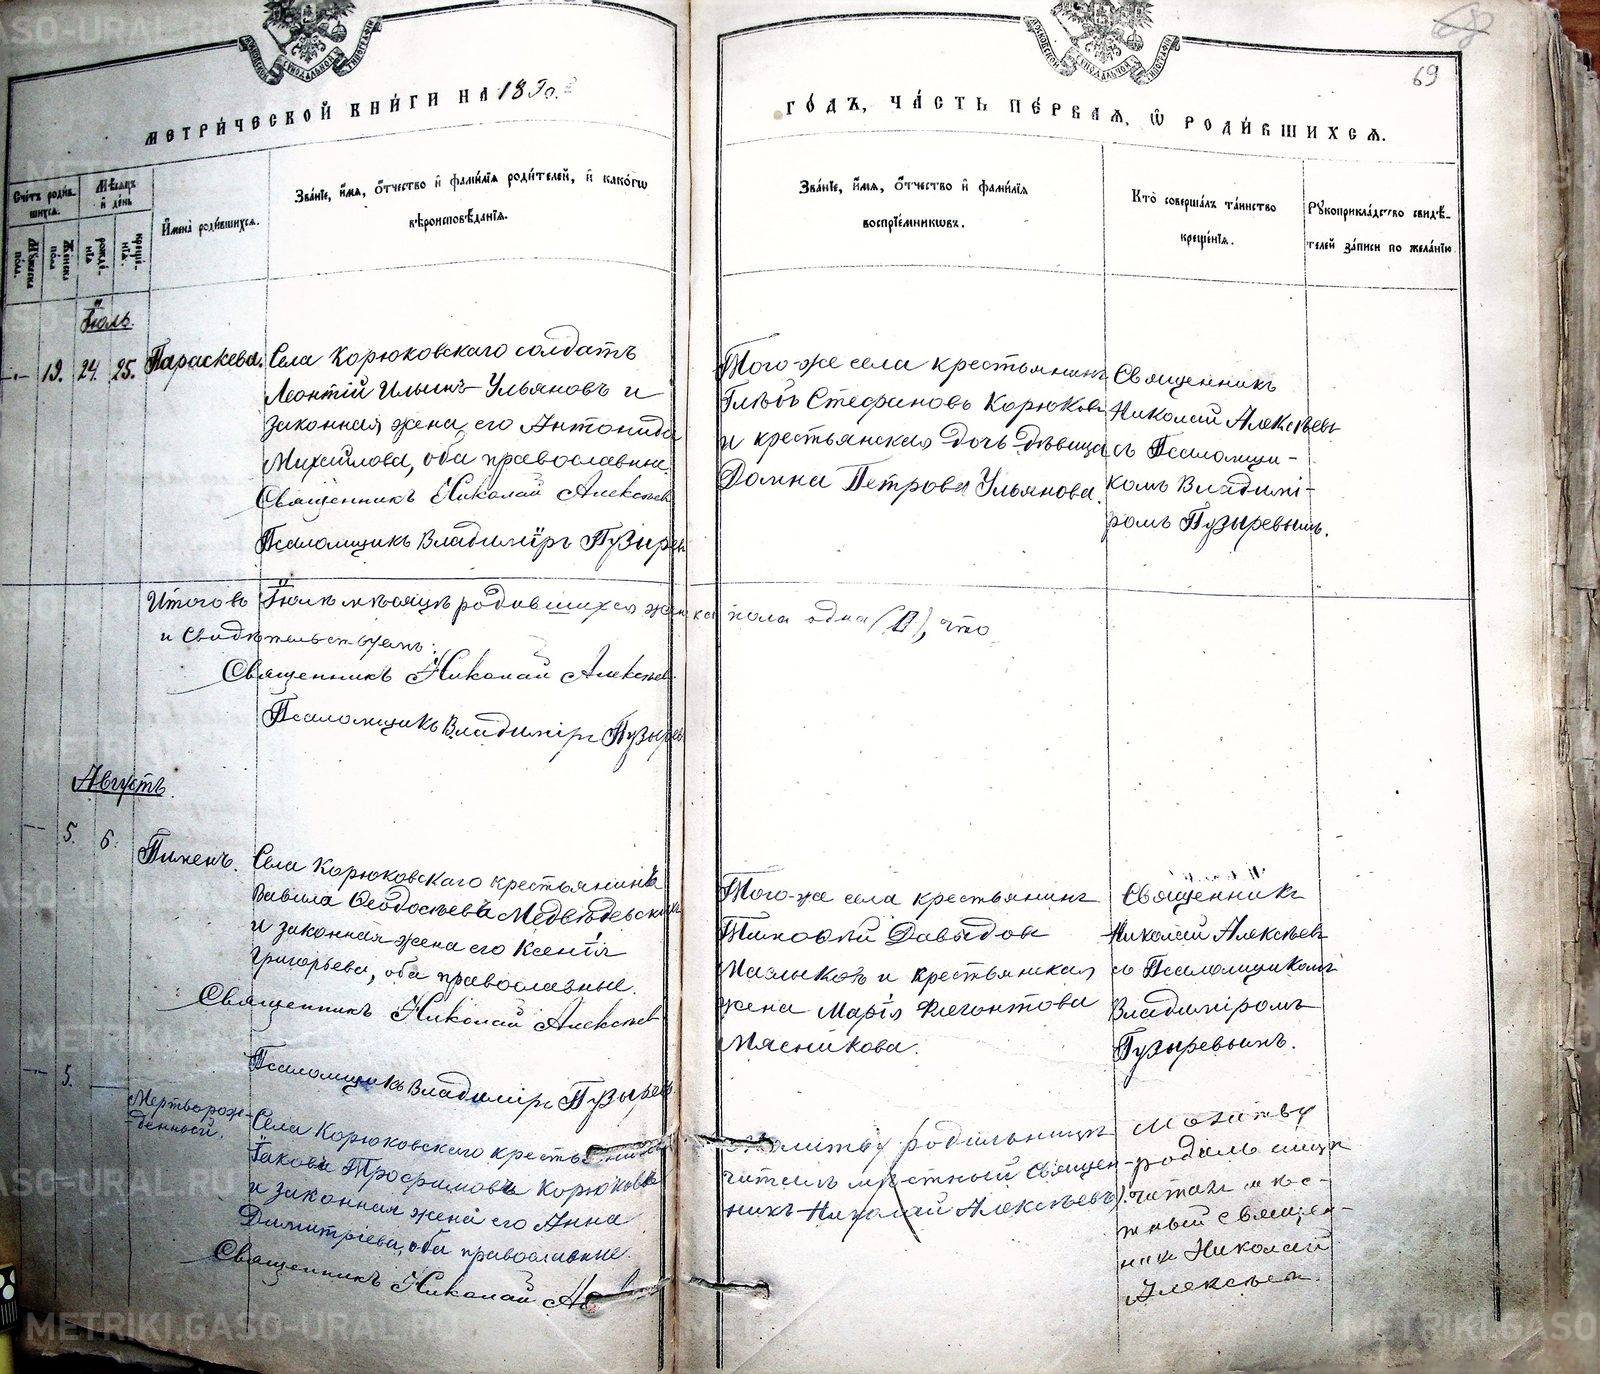 МЕТРИ́ЧЕСКОЙ КНИ́ГИ НА 1890.
ГО́ДЪ, ЧА́СТЬ ПЕ́РВАѦ, Ѡ РОДИ́ВШИХСѦ.
69
Сче́тъ роди́в-
шихсѧ.
Мѣ́сѧцъ
и҆ де́нь
Мꙋ́жеска
пола.
Же́нска
пола
рожде́-
нїѧ
креще́-
нїѧ.
И҆мена̀ роди́вшихсѧ.
Зва́нїе, и҆́мѧ, ѻ҆́тчество и҆ фами́лїѧ роди́телей, и҆ како́гѡ
вѣроисповѣ́данїѧ.
Зва́нїе, и҆́мѧ, ѻ҆́тчество и҆ фами́лїѧ
воспрїе́мникѡвъ.
Кто̀ соверша́лъ та́инство
креще́нїѧ.
Рꙋкоприкла́дство свидѣ́-
телей за́писи по жела́нїю
Іюль.
19. 24. 25. Параскева.
Села Корюковскаго солдатъ
Леонтій Ильинъ Ульяновъ и
законная жена его Антонида
Михайлова, оба православные.
Священникъ Николай Алексѣев
Псаломщикъ Владиміръ Пузырев
Того-же села крестьянинъ
Глѣбъ Стефановъ Корюков
и крестьянская дочь дѣвица
Домна Петрова Ульянова.
Священникъ
Николай Алексѣевъ
съ Псаломщи-
комъ Владимі-
ромъ Пузыревымъ.
Итого въ Іюлѣ мѣсяцѣ родившихся женска пола одна (1), что
и свидѣтельствуемъ:
Священникъ Николай Алексѣев
Псаломщикъ Владиміръ Пузырев
Августъ.
5. 6. Пименъ.
Села Корюковскаго крестьянинъ
Вавила Ѳеодосѣевъ Медвѣдевскихъ
и законная жена его Ксенія
Григорьева, оба православные.
Священникъ Николай Алексѣев
Псаломщикъ Владиміръ Пузырев
Того-же села крестьянинъ
Тимоѳей Давыдов
и крестьянская
жена Марія Флегонтова
Мясникова.
Священникъ
Николай Алексѣевъ
съ Псаломщикомъ
Владиміромъ
Пузыревымъ.
5. Мертворож-
денный.
Села Корюковскаго крестьянинъ
Іаковъ Трофимовъ Корюковъ
и законная жена его Анна
Димитріева, оба православные.
Священникъ Николай Ал
Молитву родильницѣ
читалъ мѣстный Священ-
никъ Николай Алексѣевъ).
Молитву
родильницѣ
читалъ мѣс-
тный священ-
никъ Николай
Алексѣевъ.
METRIKI.GASO-URAL.RU